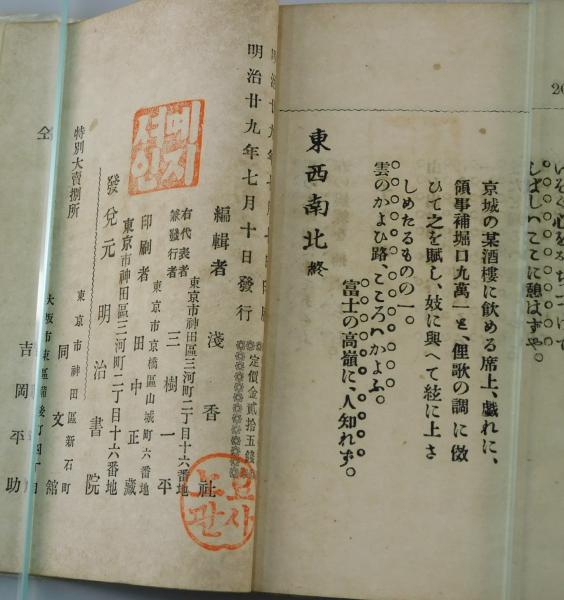 しばしここに憩はずや。
京城の某酒樓に飮める席上、戯れに、
領事補堀口九萬一と、俚歌の調に傚
ひて之を賦し、妓に與へて絃に上さ
しめたるものの一。
雲のかよひ路、こころハかよふ。
富士の高嶺に、人知れず。
東西南北 終
明治廿九年七月十日發行
定價金貳拾五錢
編輯者 淺香社
東京市神田區三河町二丁目十六番地
右代表者
兼發行者 三樹一平
東京市京橋區山城町六番地
印刷者 田中正藏
東京市神田區三河町二丁目十六番地
發兌元 明治書院
特別大賣捌所
東京市神田區新石町
同文館
仝
吉岡平助